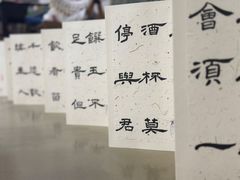 會須一
酒杯莫
停與君
饌玉不
足貴但
飲者留